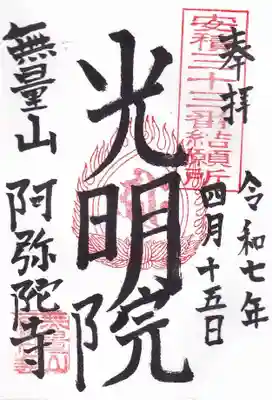 奉拝
令和七年
四月十五日
安積三十三番結願所
光明院
無量山 阿弥陀寺